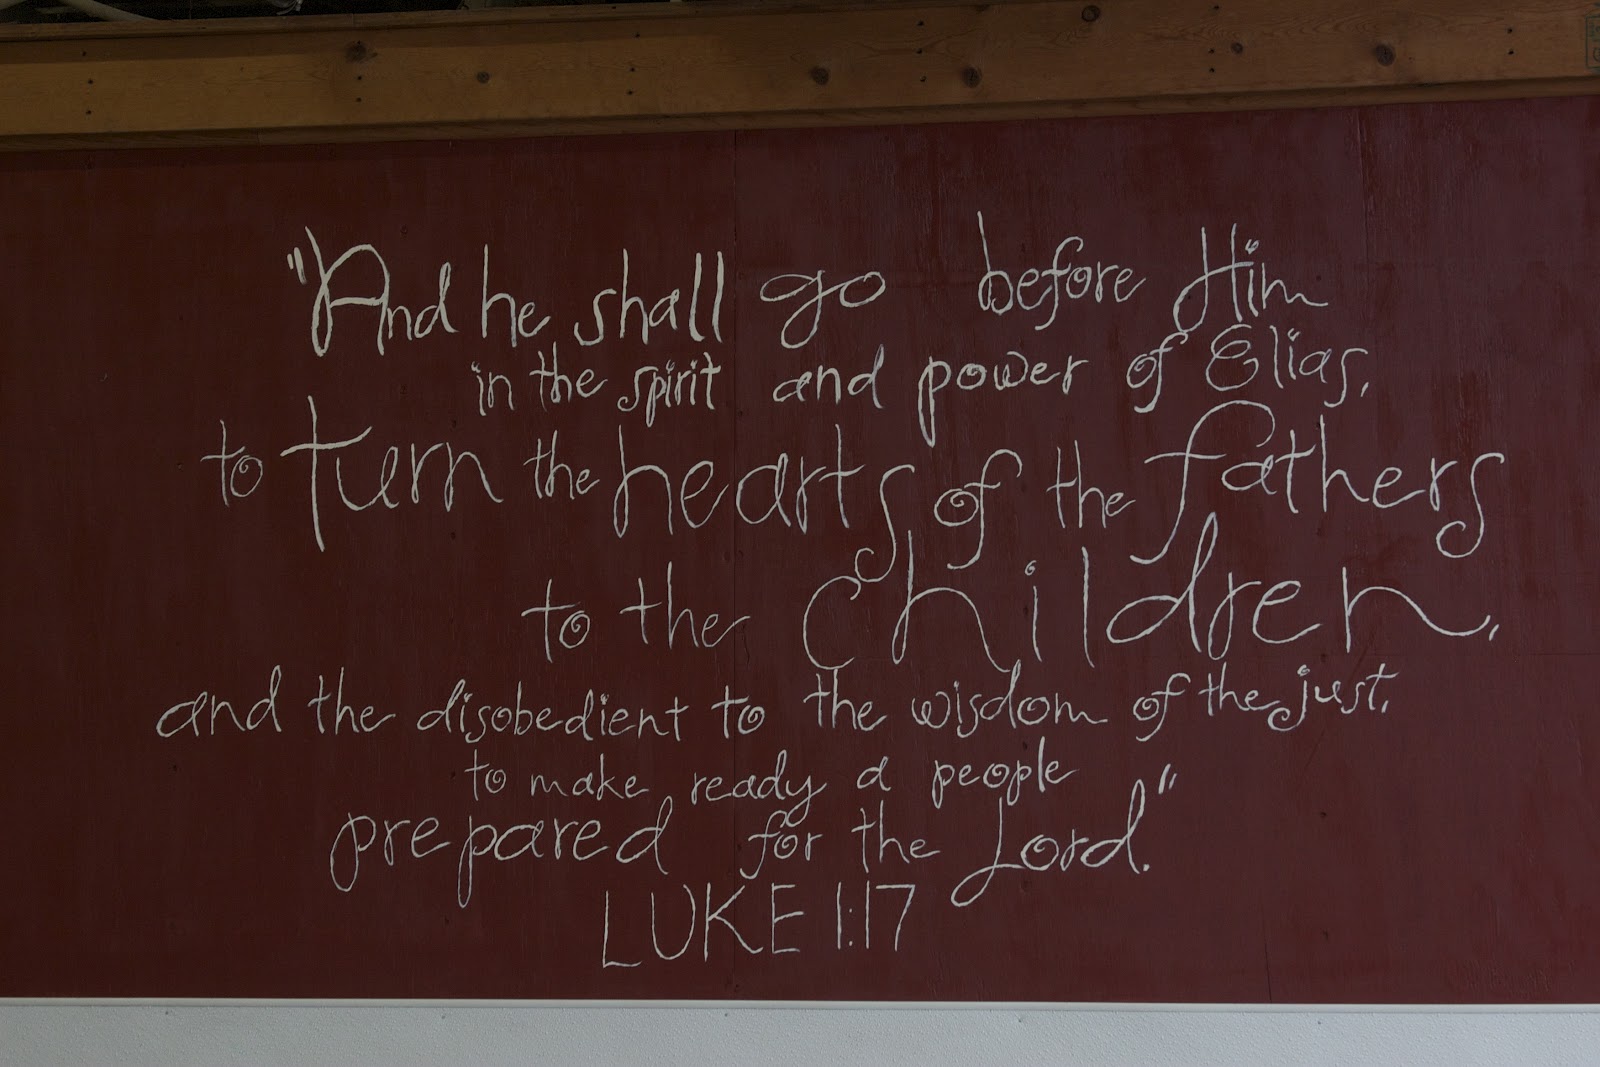 "And he shall go before Him
in the spirit and power of Elias,
to turn the hearts of the fathers
to the children,
and the disobedient to the wisdom of the just,
to make ready a people
prepared for the Lord."
LUKE 1:17